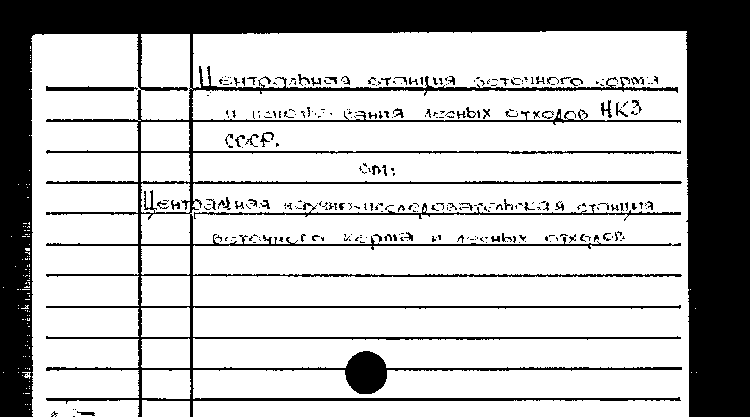 Центральная станция веточного корма
и использования лесных отходов НКЗ
СССР.
см:
Центральная научно-исследовательская станция
веточного корма и лесных отходов